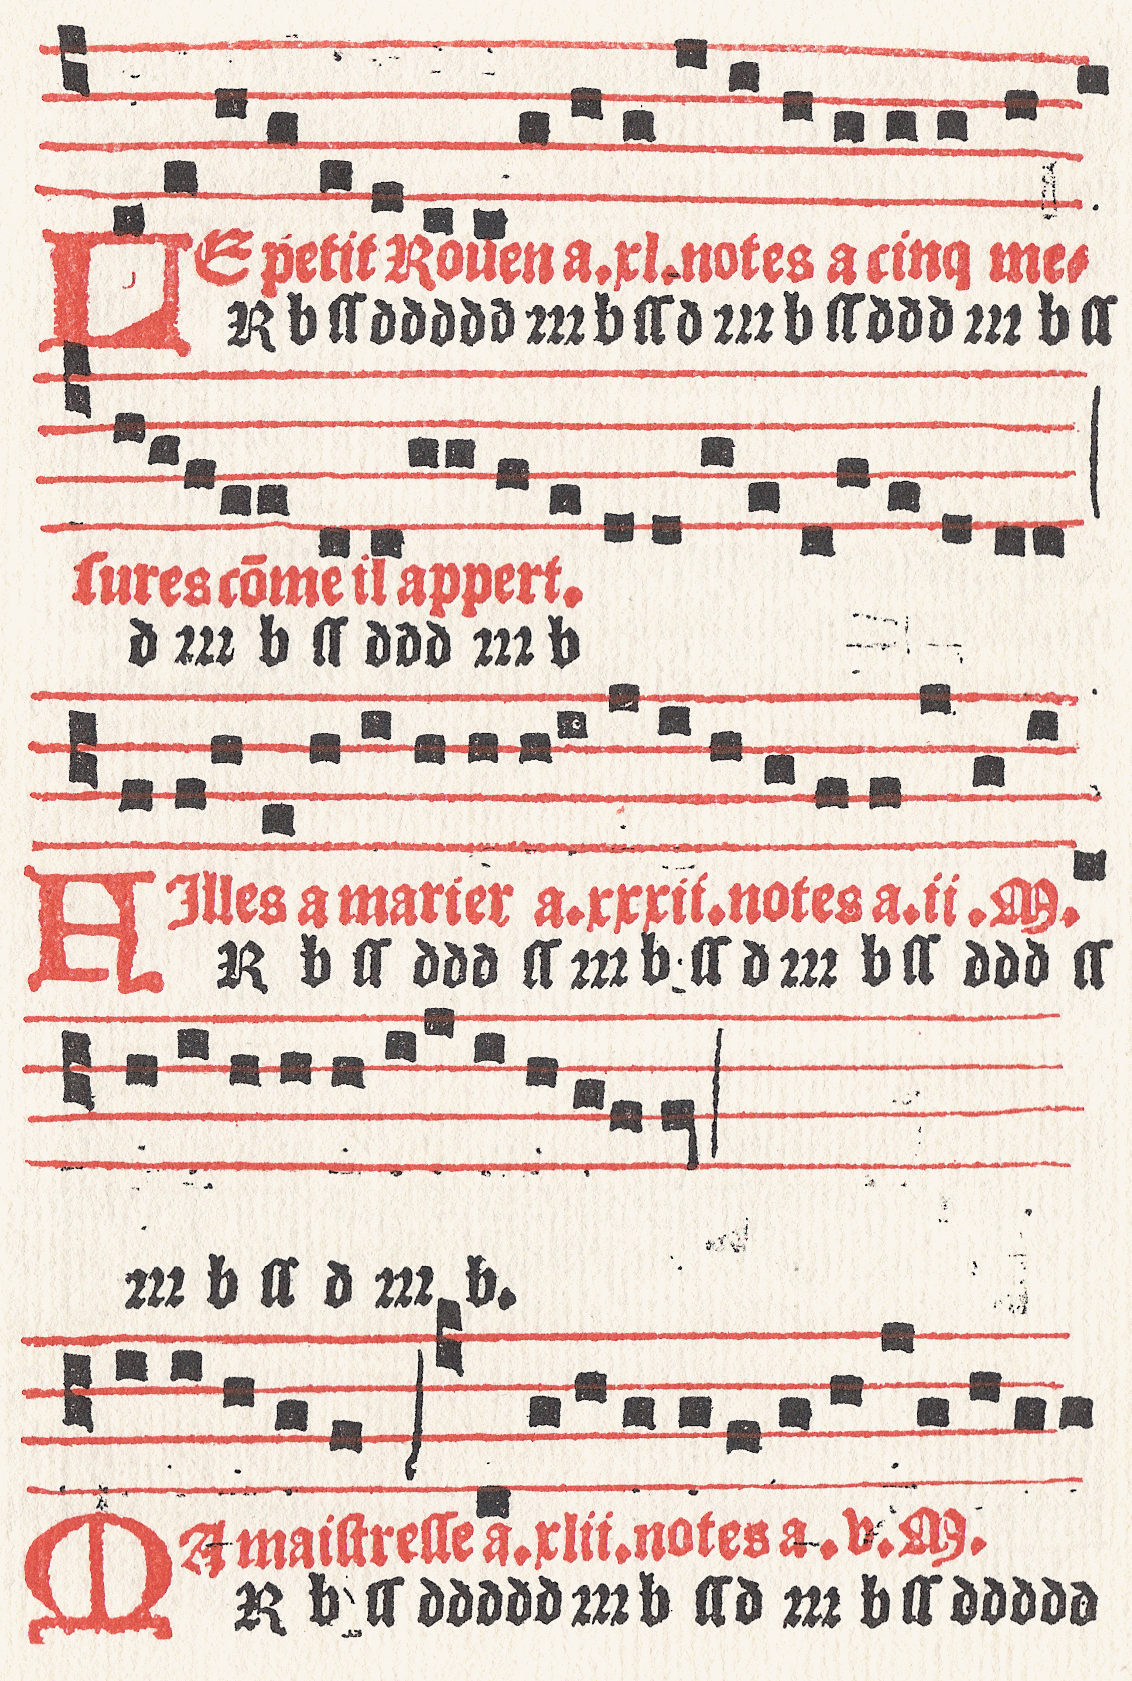 LE petit Rouen a.xl.notes a cinq me⸗
R b ſſ ddddd rrr b ſſ d rrr b ſſ ddd rrr b ſſ
ſures cōme il appert.
d rrr b ſſ ddd rrr b
AIlles a marier a.xxxii.notes a.ii.M.
R b ſſ ddd ſſ rrr b ſſ d rrr b ſſ ddd ſſ
rrr b ſſ d rrr b.
MA maiſtreſſe a.xlii.notes a.v.M.
R b ſſ ddddd rrr b ſſ d rrr b ſſ ddddd